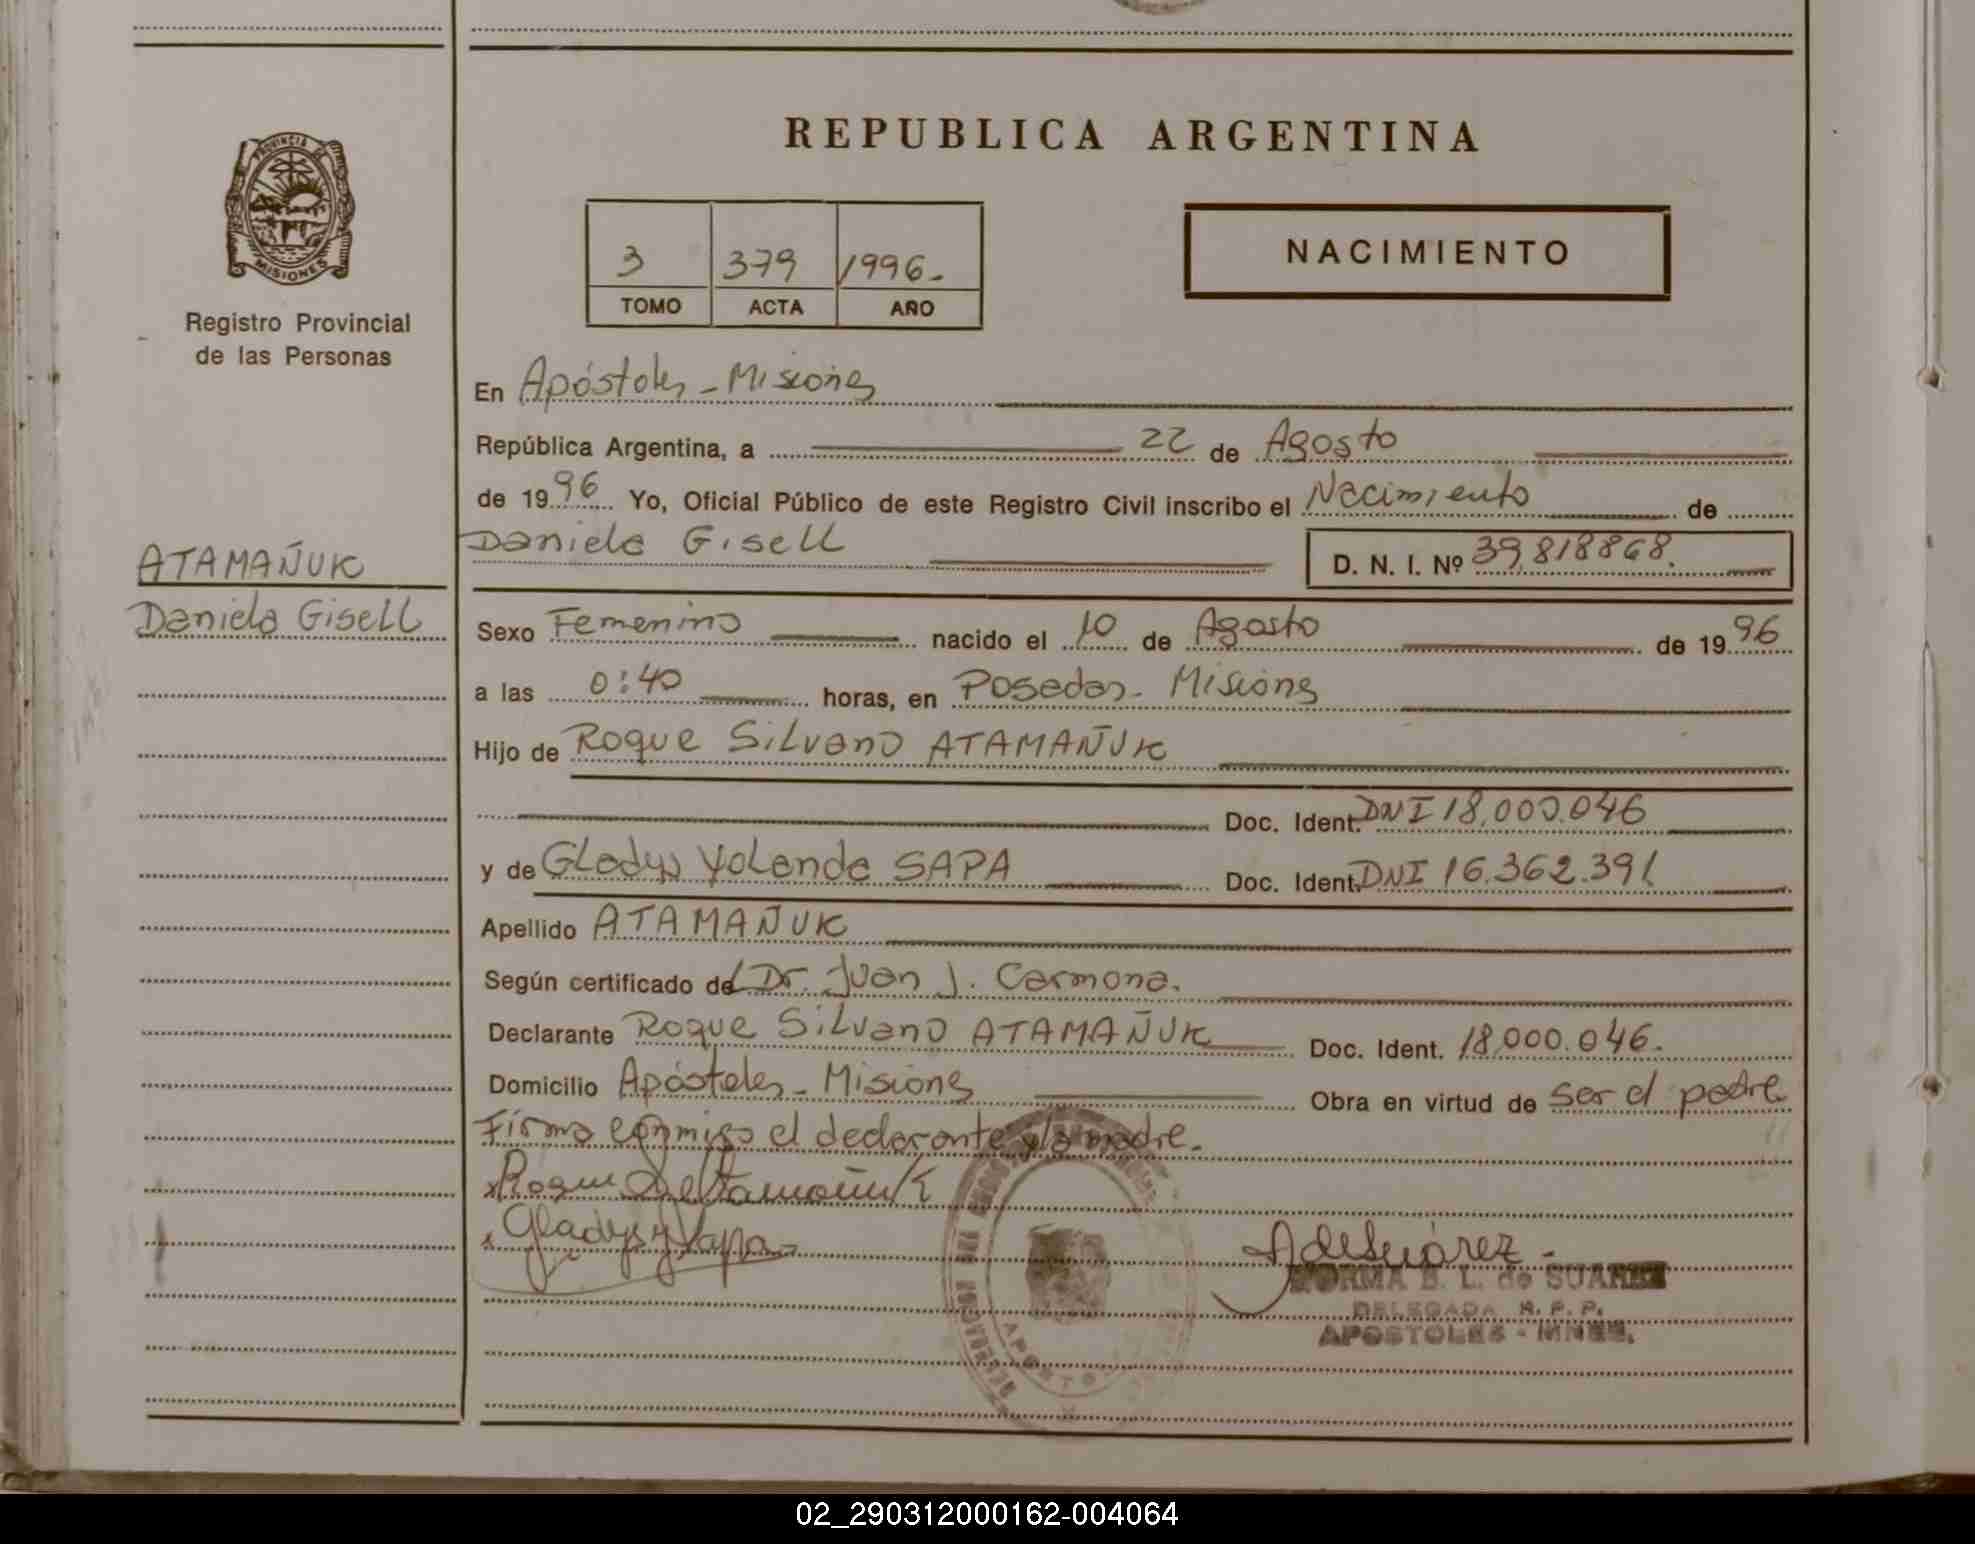 REPUBLICA ARGENTINA
PROVINCIA DE
MISIONES
Registro Provincial
de las Personas
3 379 1996.
TOMO ACTA AÑO
NACIMIENTO
En Apóstoles - Misiones
República Argentina, a 22 de Agosto
de 1996 Yo, Oficial Público de este Registro Civil inscribo el Nacimiento de
Daniela Gisell
D. N. I. Nº 39.818868.
ATAMAÑUK
Daniela Gisell
Sexo Femenino nacido el 10 de Agosto de 1996
a las 0:40 horas, en Posadas - Misiones
Hijo de Roque Silvano ATAMAÑUK
Doc. Ident. DNI 18.000.046
y de Gladys Yolanda SAPA Doc. Ident. DNI 16.362.391
Apellido ATAMAÑUK
Según certificado del Dr. Juan J. Carmona.
Declarante Roque Silvano ATAMAÑUK Doc. Ident. 18.000.046.
Domicilio Apóstoles - Misiones Obra en virtud de ser el padre
Firma conmigo el declarante y la madre.
Roque S Atamañuk
Gladys Y Sapa
NORMA B. L. de SUAREZ
DELEGADA R. P. P.
APOSTOLES - MNES.
02_290312000162-004064